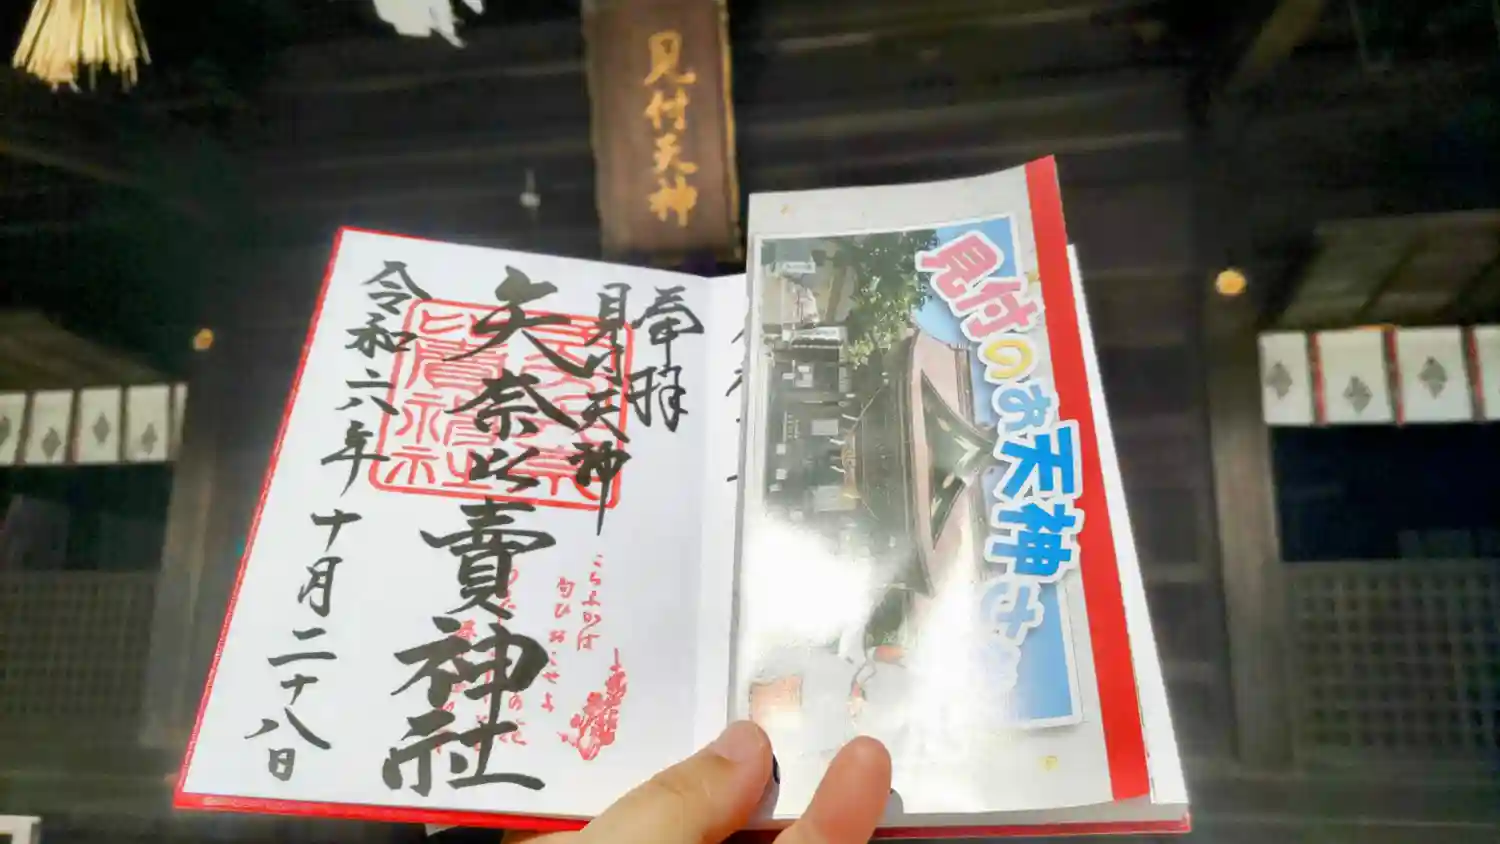 見付天神
奉拝
見付天神
矢奈比賣神社
令和六年十月二十八日
こちふかば
匂ひおこせよ
見付のお天神さ